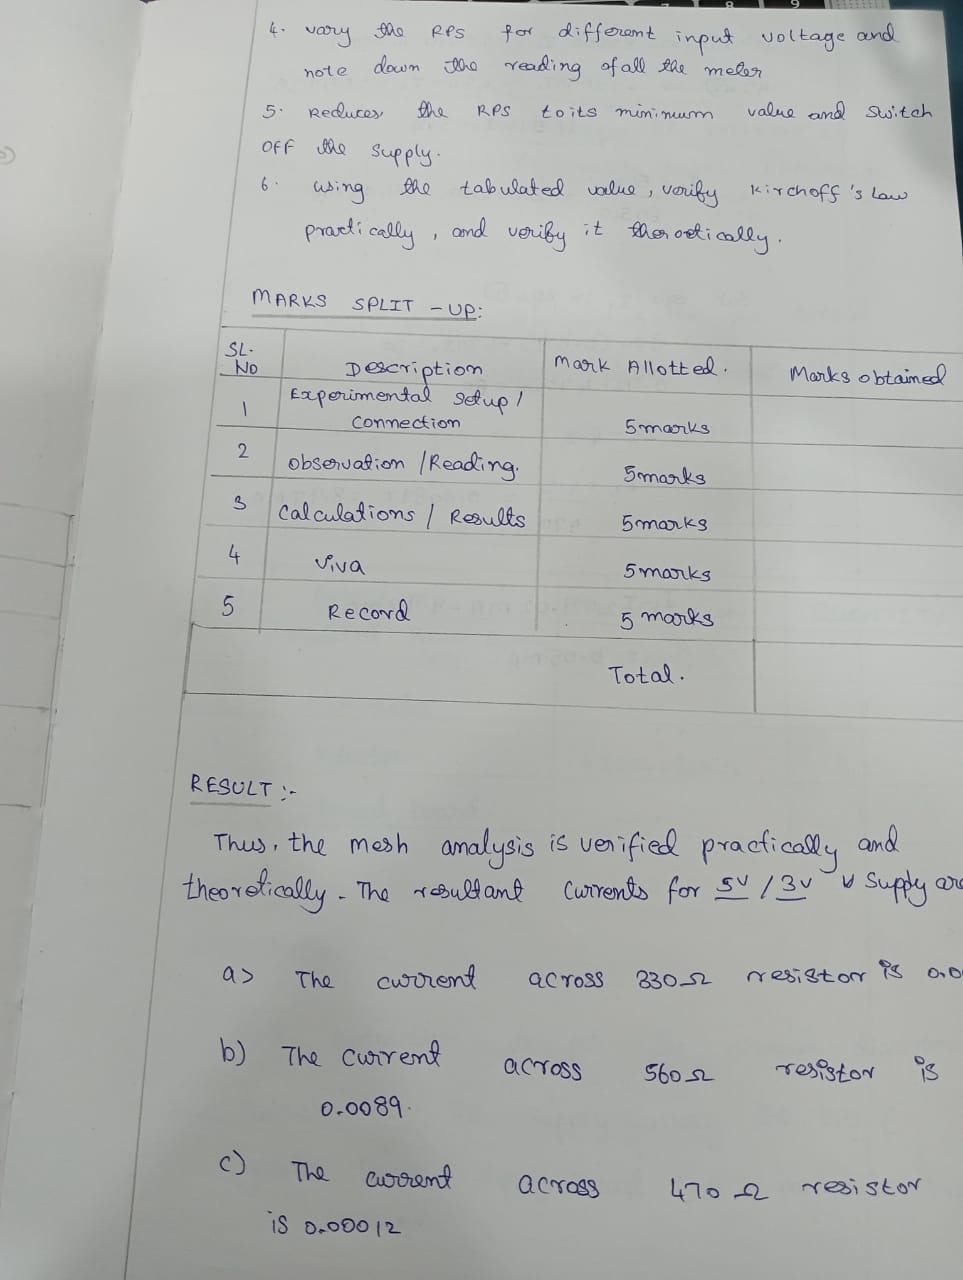 4. vary the RPS for different input voltage and
note down the reading of all the meter
5. Reduces the RPS to its minimum value and switch
OFF the supply.
6. using the tabulated value, verify Kirchoff's Law
practically, and verify it theroetically.
MARKS SPLIT - UP:
SL. No Description Mark Allotted. Marks obtained
1 Experimental setup / Connection 5 marks
2 observation / Reading. 5 marks
3 Calculations / Results 5 marks
4 Viva 5 marks
5 Record 5 marks
Total.
RESULT :-
Thus, the mesh analysis is verified practically and
theoretically. The resultant currents for 5V / 3V supply are
a) The current across 330Ω resistor is 0.0
b) The current across 560Ω resistor is
0.0089.
c) The current across 470Ω resistor
is 0.00012